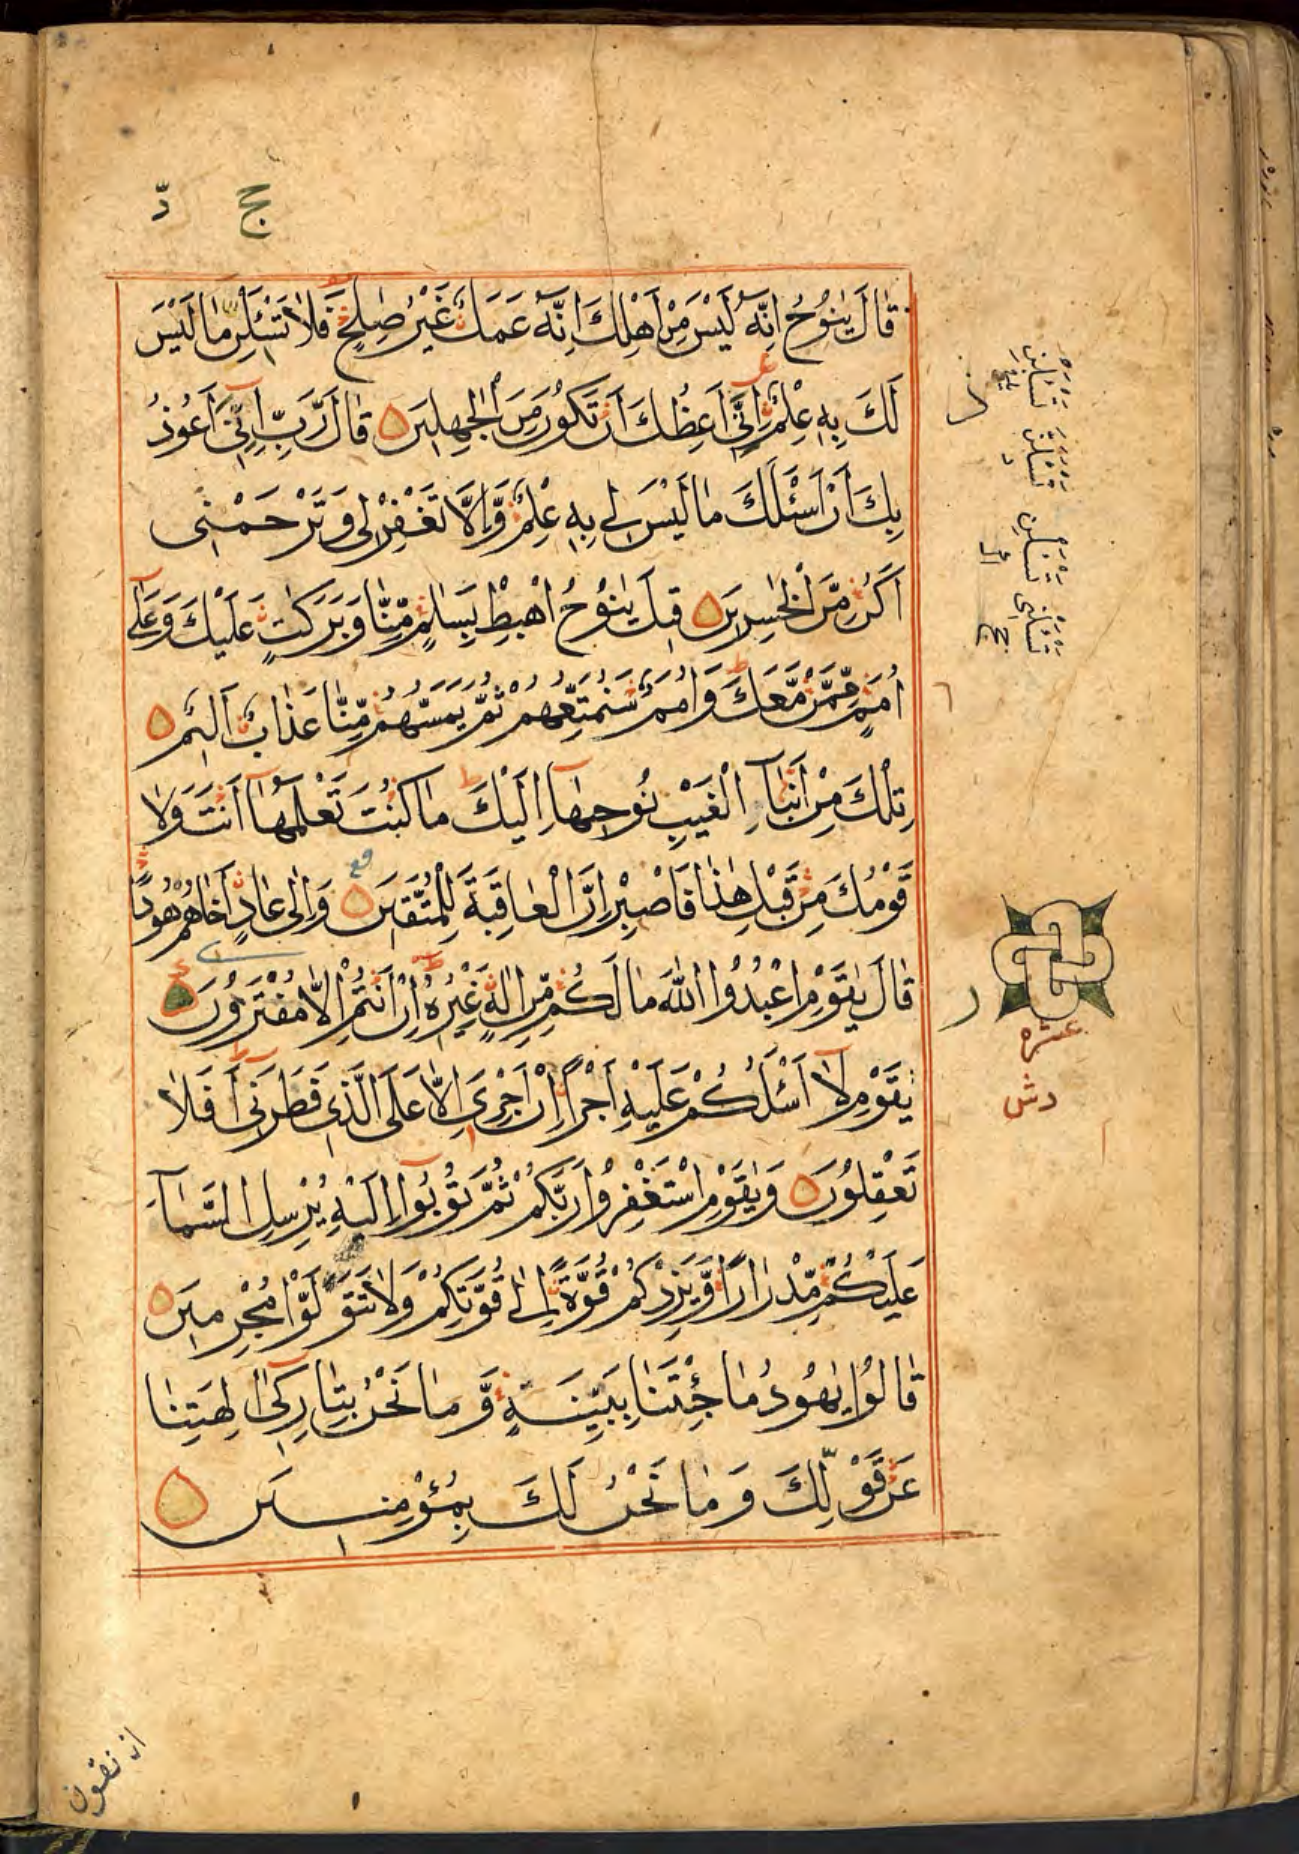 ج دّ
قَالَ يٰنُوْحُ اِنَّهٗ لَيْسَ مِنْ اَهْلِكَ اِنَّهٗ عَمَلٌ غَيْرُ صٰلِحٍ فَلَا تَسْئَلْنِ مَا لَيْسَ
لَكَ بِهٖ عِلْمٌ اِنِّىٓ اَعِظُكَ اَنْ تَكُوْنَ مِنَ الْجٰهِلِيْنَ قَالَ رَبِّ اِنِّىٓ اَعُوْذُ
بِكَ اَنْ اَسْئَلَكَ مَا لَيْسَ لِىْ بِهٖ عِلْمٌ وَّاِلَّا تَغْفِرْ لِىْ وَتَرْحَمْنِىْ
اَكُنْ مِّنَ الْخٰسِرِيْنَ قِيْلَ يٰنُوْحُ اهْبِطْ بِسَلٰمٍ مِّنَّا وَبَرَكٰتٍ عَلَيْكَ وَعَلٰٓى
اُمَمٍ مِّمَّنْ مَّعَكَ وَاُمَمٌ سَنُمَتِّعُهُمْ ثُمَّ يَمَسُّهُمْ مِّنَّا عَذَابٌ اَلِيْمٌ
تِلْكَ مِنْ اَنْبَآءِ الْغَيْبِ نُوْحِيْهَآ اِلَيْكَ مَا كُنْتَ تَعْلَمُهَآ اَنْتَ وَلَا
قَوْمُكَ مِنْ قَبْلِ هٰذَا فَاصْبِرْ اِنَّ الْعَاقِبَةَ لِلْمُتَّقِيْنَ وَاِلٰى عَادٍ اَخَاهُمْ هُوْدًا
قَالَ يٰقَوْمِ اعْبُدُوا اللّٰهَ مَا لَكُمْ مِّنْ اِلٰهٍ غَيْرُهٗ اِنْ اَنْتُمْ اِلَّا مُفْتَرُوْنَ
يٰقَوْمِ لَآ اَسْئَلُكُمْ عَلَيْهِ اَجْرًا اِنْ اَجْرِىَ اِلَّا عَلَى الَّذِىْ فَطَرَنِىْٓ اَفَلَا
تَعْقِلُوْنَ وَيٰقَوْمِ اسْتَغْفِرُوْا رَبَّكُمْ ثُمَّ تُوْبُوْٓا اِلَيْهِ يُرْسِلِ السَّمَآءَ
عَلَيْكُمْ مِّدْرَارًا وَّيَزِدْكُمْ قُوَّةً اِلٰى قُوَّتِكُمْ وَلَا تَتَوَلَّوْا مُجْرِمِيْنَ
قَالُوْا يٰهُوْدُ مَا جِئْتَنَا بِبَيِّنَةٍ وَّمَا نَحْنُ بِتَارِكِىْٓ اٰلِهَتِنَا
عَنْ قَوْلِكَ وَمَا نَحْنُ لَكَ بِمُؤْمِنِيْنَ
عشره
ان نقول